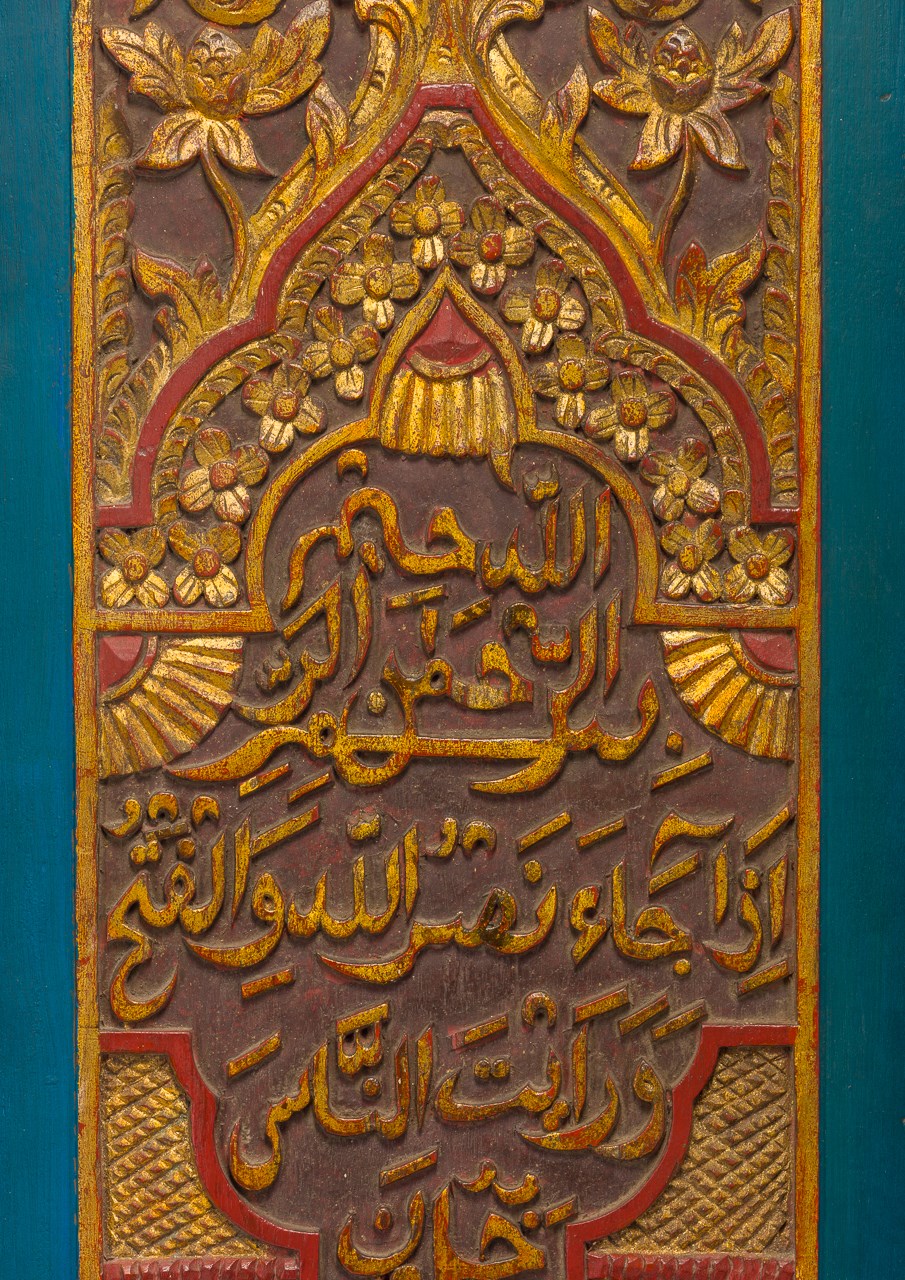 بِسْمِ اللَّهِ الرَّحْمَنِ الرَّحِيمِ
إِذَا جَاءَ نَصْرُ اللَّهِ وَالْفَتْحُ
وَرَأَيْتَ النَّاسَ